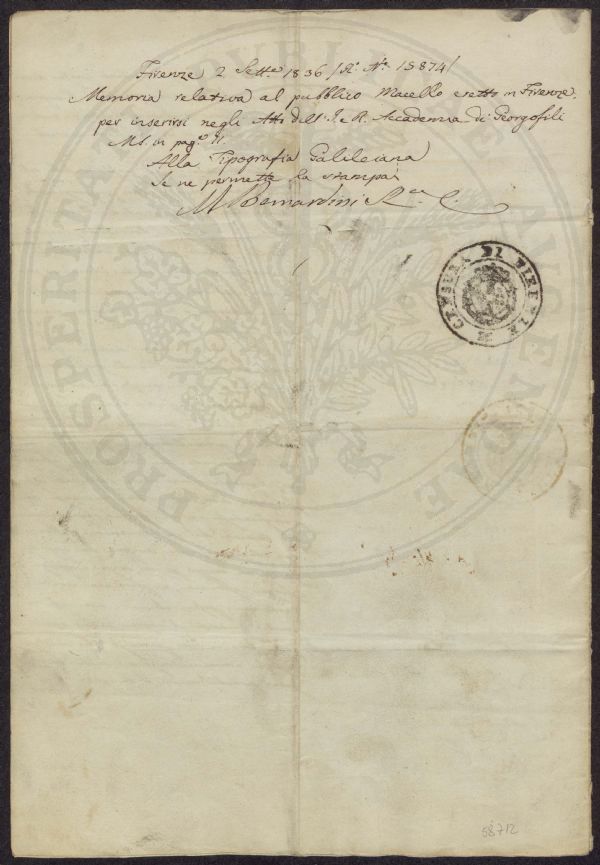 Firenze 2 Sett.e 1836 / R.o N.o 15874 /
Memoria relativa al pubblico Macello eretto in Firenze
per inserirsi negli Atti dell' I. e R. Accademia dei Georgofili
MS. in pag.e 11
Alla Tipografia Galileiana
Se ne permette la stampa
M Bernardini R. C.
CENSURA DI FIRENZE
PROSPERITATI AUGENDAE
58712